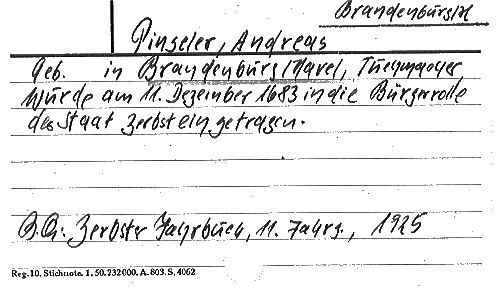 Brandenburg/H
Pinseler, Andreas
Geb. in Brandenburg/Havel, Tuchmacher
Wurde am 11. Dezember 1683 in die Bürgerrolle
der Staat Zerbst eingetragen.
B.Q.: Zerbster Jahrbuch, 11. Jahrg., 1925
Reg. 10. Stichnote. 1. 50. 232000. A. 803. S. 4062